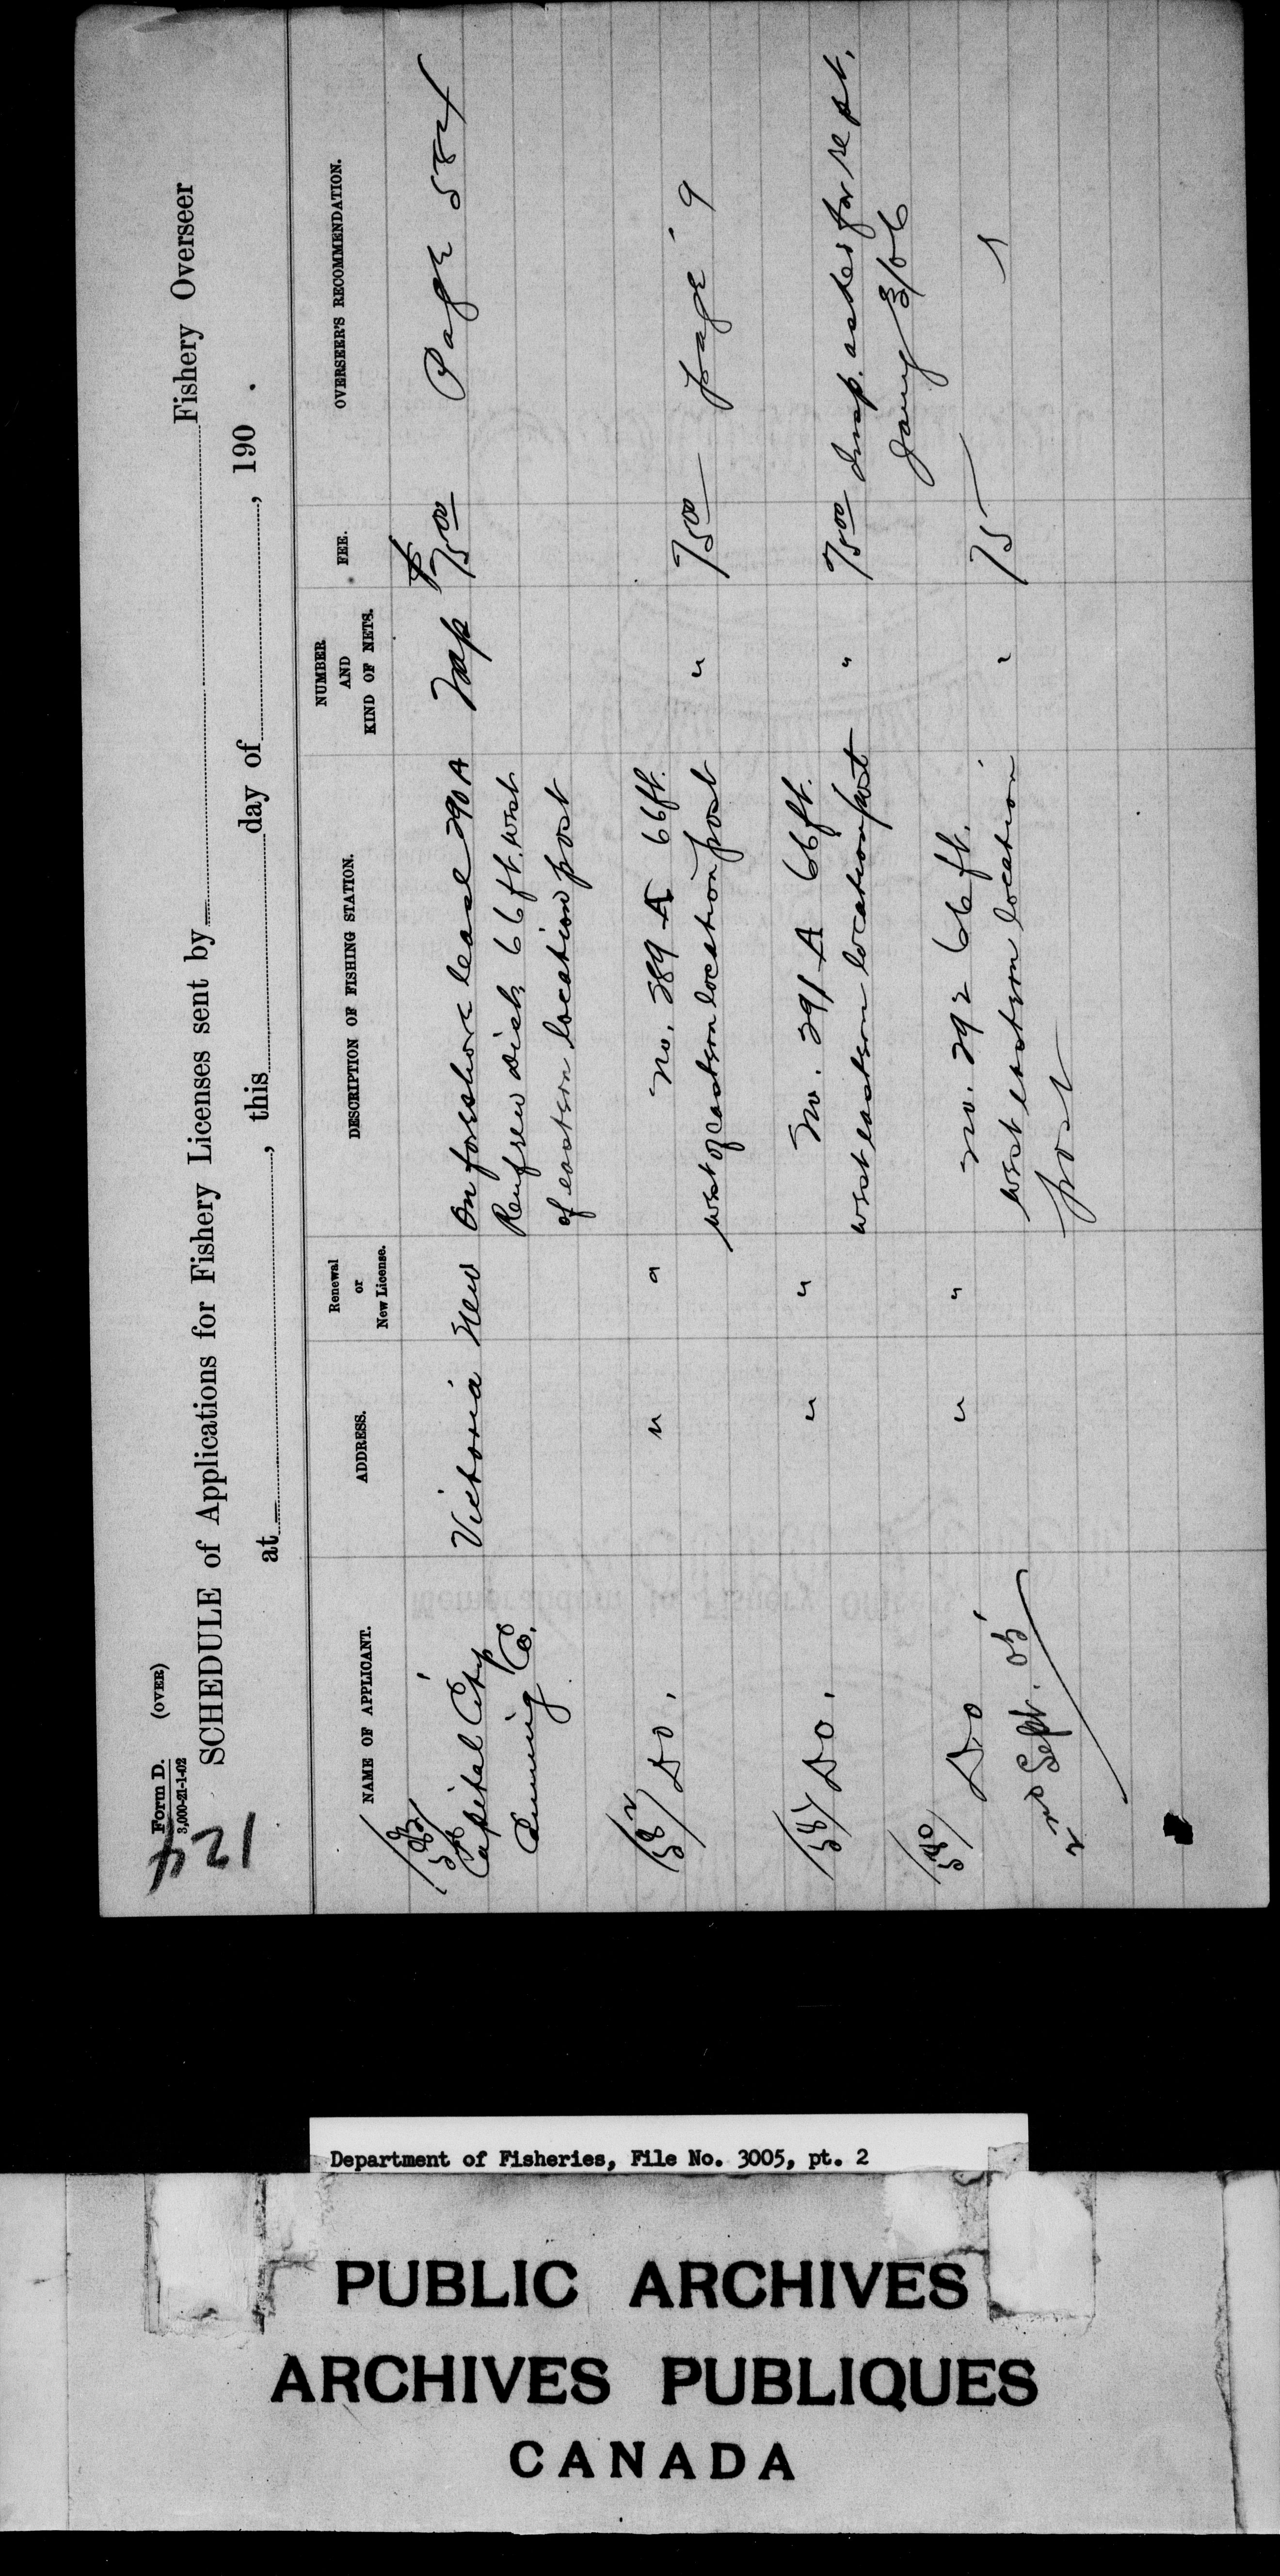 124
Form D. (OVER)
3,000-21-1-02
SCHEDULE of Applications for Fishery Licenses sent by Fishery Overseer
at , this day of , 190 .
NAME OF APPLICANT. ADDRESS. Renewal or New License. DESCRIPTION OF FISHING STATION. NUMBER AND KIND OF NETS. FEE. OVERSEER'S RECOMMENDATION.
583
Capital City Victoria New On foreshore lease 290 A Trap $75 00 Page 584
Canning Co. Renfrew Dist. 66 ft. west
of eastern location post
582 Do. " " No. 289 A 66 ft.
west of eastern location post " 75 00 page 9
581 Do. " " No. 291 A 66 ft.
west eastern location post " 75 00 Insp. asked for rept.
Jany 3/06
580 Do " " No. 292 66 ft.
west eastern location " 75
post
2nd Sept. 05
Department of Fisheries, File No. 3005, pt. 2
PUBLIC ARCHIVES
ARCHIVES PUBLIQUES
CANADA